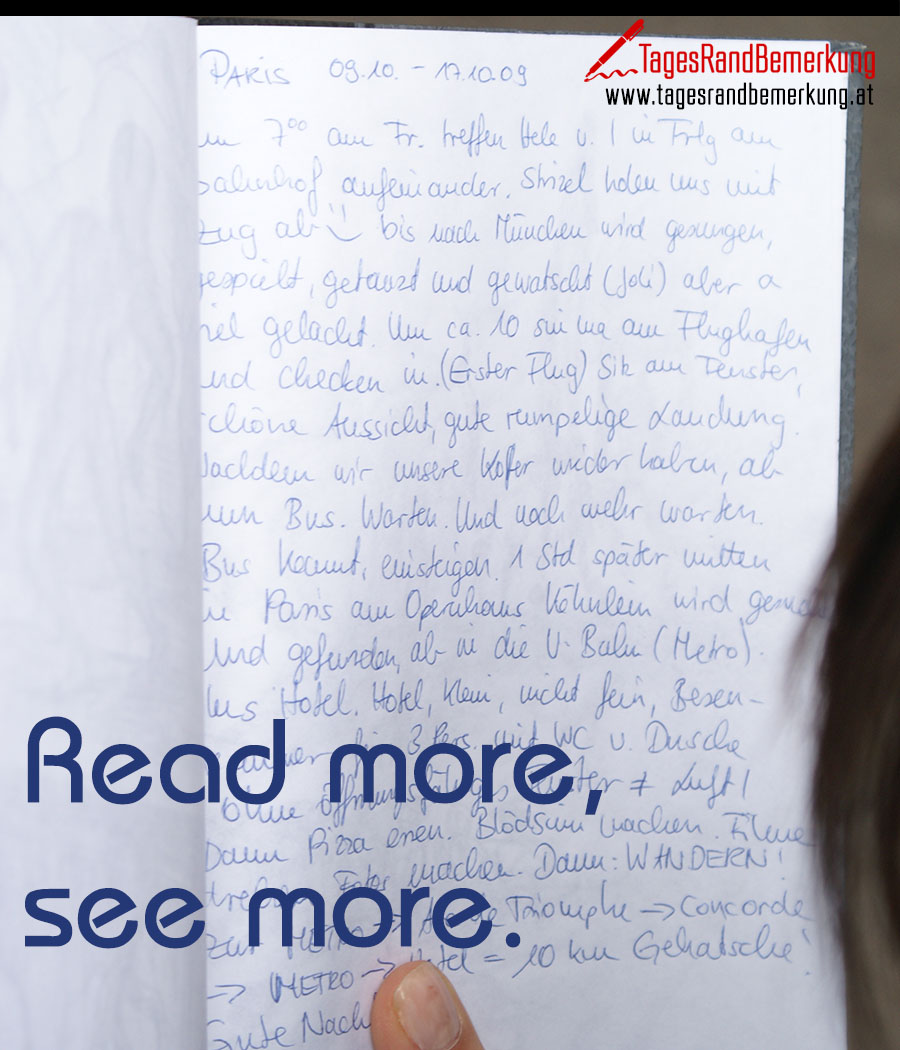 TagesRandBemerkung
www.tagesrandbemerkung.at
PARIS 09.10. - 17.10.09
um 7⁰⁰ am Fr. treffen Hele u. I in Frtg am
bahnhof aufeinander. Strizel holen uns mit
Zug ab bis nach München wird gesungen,
gespielt, getanzt und gewatscht (Joli) aber a
viel gelacht. Um ca. 10 sin ma am Flughafen
und checken in. (Erster Flug) Sitz am Fenster,
schöne Aussicht, gute rumpelige Landung.
Nachdem wir unsere Kofer wieder haben, ab
zum Bus. Warten. Und noch mehr warten.
Bus kommt, einsteigen. 1 Std später mitten
in Paris am Opernhaus wird
Und gefunden, ab in die U-Bahn (Metro).
Ins Hotel. Hotel, klein, nicht fein, Besen-
kammer für 3 Pers. mit WC u. Dusche
Ohne öffnungsfähiges Fenster ≠ Luft!
Dann Pizza essen. Blödsinn machen. Filme
Fotos machen. Dann: WANDERN!
zur METRO → Arc de Triomphe → Concorde
→ METRO → Hotel = 10 km Gehatsche!
Gute Nacht
Read more,
see more.